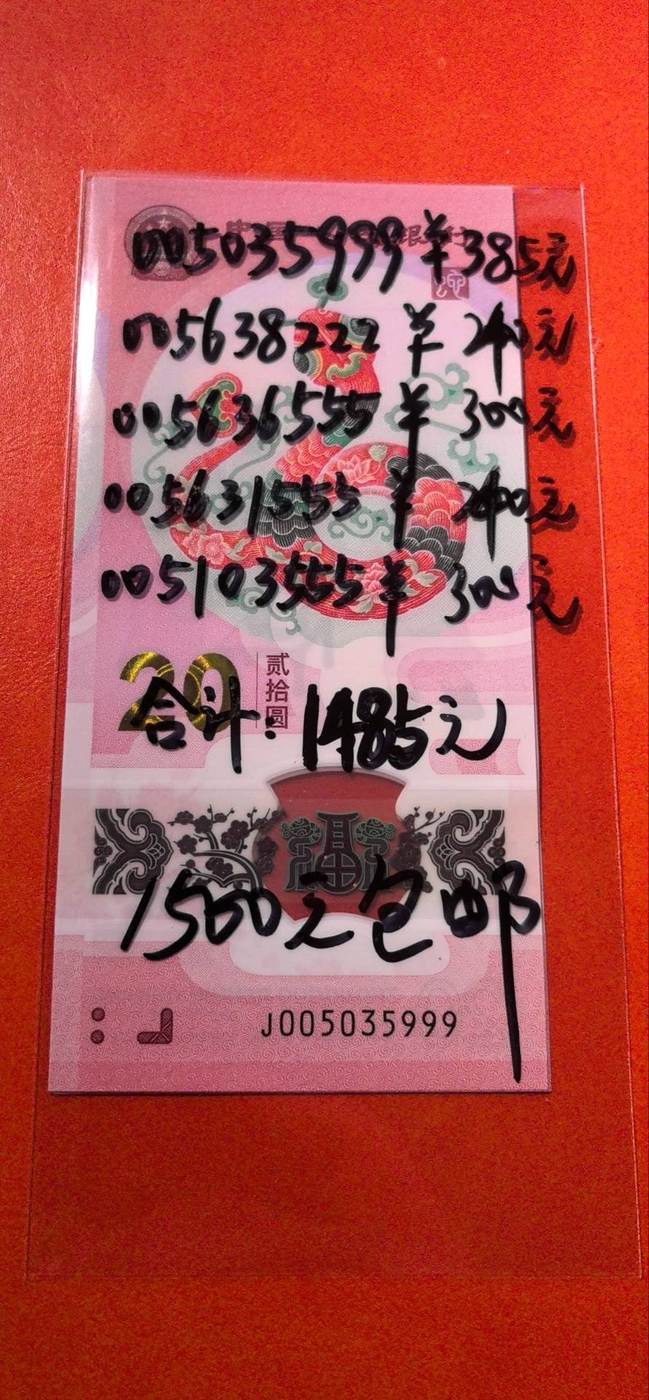 0055035999 羊385元
005638222 羊 240元
005636555 羊 300元
005631555 羊 240元
005103555 羊 300元
20
贰拾圆
合计:1485元
1500元包邮
J005035999